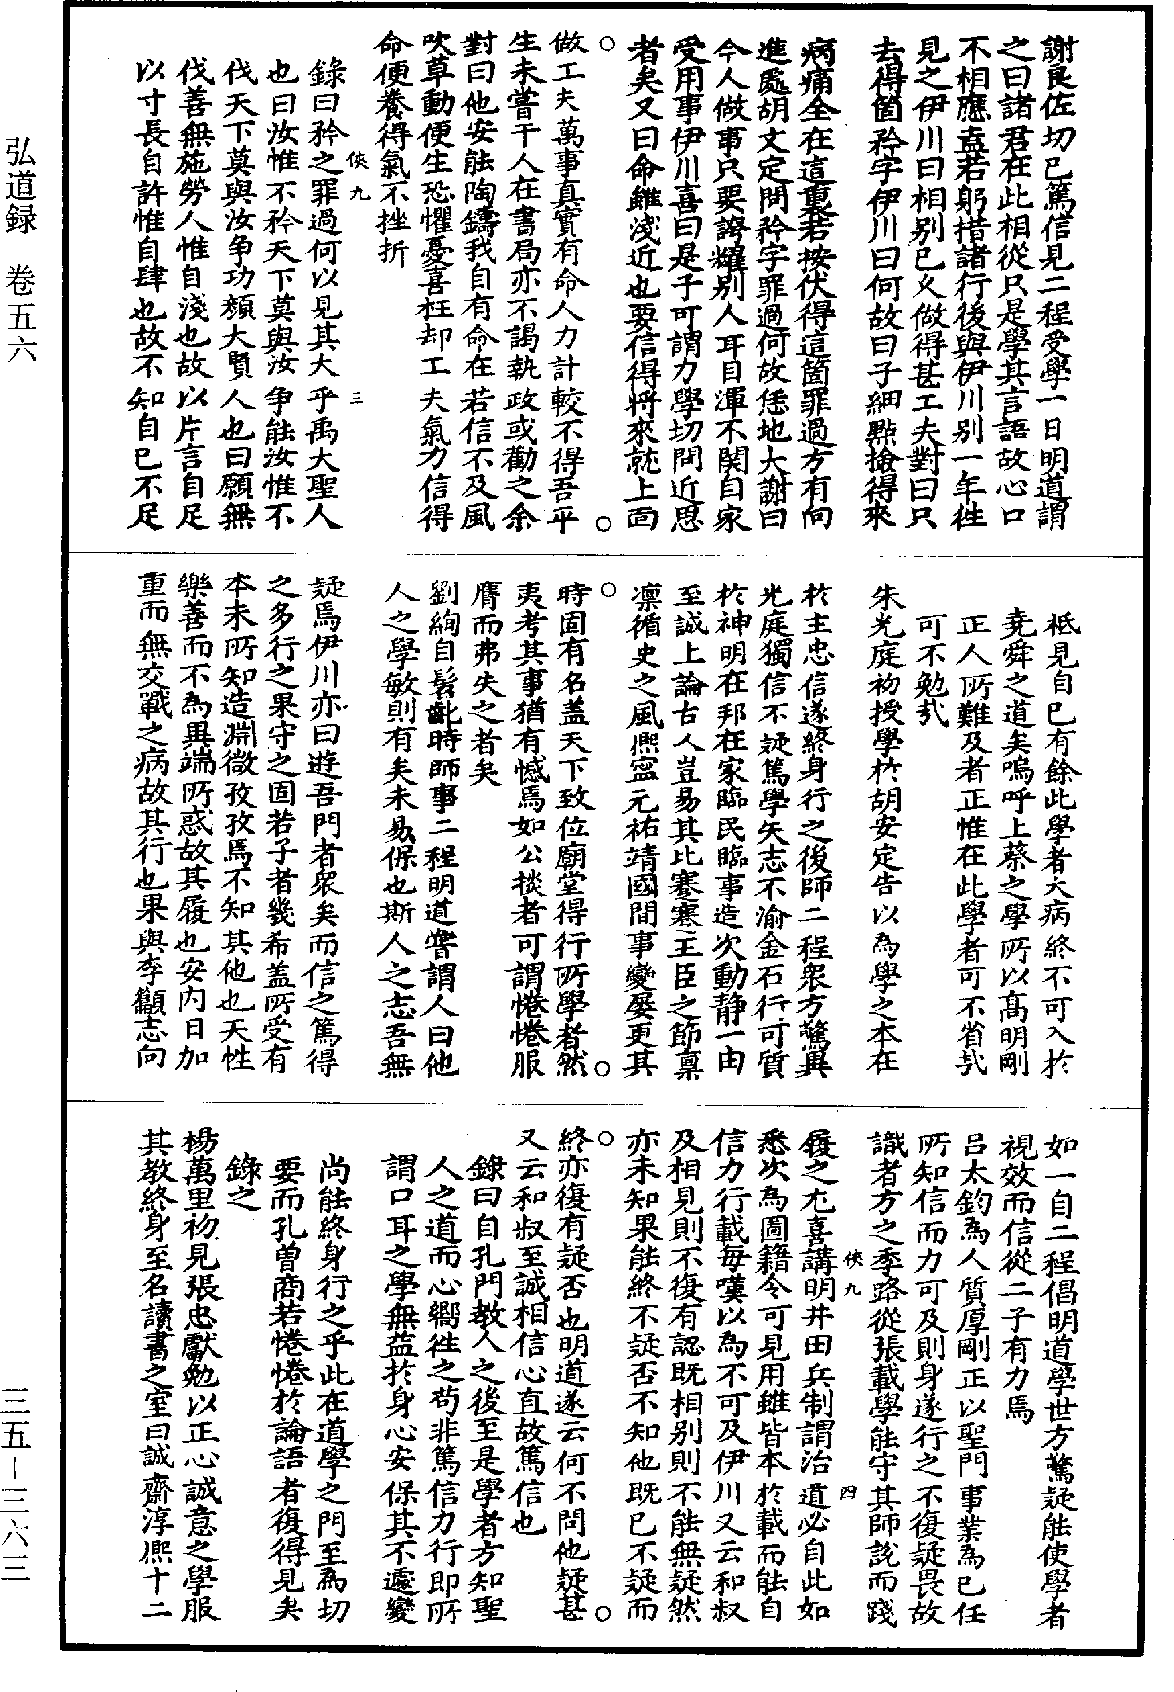 弘道録　卷五六
三五－三六三
謝良佐切已篤信見二程受學一日明道謂
之曰諸君在此相從只是學其言語故心口
不相應盍若躬措諸行後與伊川別一年徃
見之伊川曰相別已久做得甚工夫對曰只
去得箇矜字伊川曰何故曰子細點撿得來
病痛全在這裏若按伏得這箇罪過方有向
進處胡文定問矜字罪過何故恁地大謝曰
今人做事只要誇耀別人耳目渾不関自家
受用事伊川喜曰是子可謂力學切問近思
者矣又曰命雖淺近也要信得將來就上面
做工夫萬事真實有命人力計較不得吾平
生未嘗干人在書局亦不謁執政或勸之余
對曰他安能陶鑄我自有命在若信不及風
吹草動便生恐懼憂喜枉却工夫氣力信得
命便養得氣不挫折
錄曰矜之罪過何以見其大乎禹大聖人
也曰汝惟不矜天下莫與汝争能汝惟不
伐天下莫與汝争功顔大賢人也曰願無
伐善無施勞人惟自淺也故以片言自足
以寸長自許惟自肆也故不知自已不足
俠九
三
祗見自已有餘此學者大病終不可入於
尭舜之道矣嗚呼上蔡之學所以髙明剛
正人所難及者正惟在此學者可不省㢤
可不勉㢤
朱光庭初授學於胡安定告以為學之本在
於主忠信遂終身行之後師二程衆方驚異
光庭獨信不疑篤學矢志不渝金石行可質
於神明在邦在家臨民臨事造次動静一由
至誠上論古人豈易其比蹇蹇王臣之節稟
凛循史之風熙寧元祐靖國間事變屡更其
時固有名盖天下致位廟堂得行所學者然
夷考其事猶有憾焉如公掞者可謂惓惓服
膺而弗失之者矣
劉絢自髫齓時師事二程明道嘗謂人曰他
人之學敏則有矣未易保也斯人之志吾無
疑焉伊川亦曰遊吾門者衆矣而信之篤得
之多行之果守之固若子者幾希盖所受有
本末所知造淵微孜孜焉不知其他也天性
樂善而不為異端所惑故其履也安内日加
重而無交戰之病故其行也果與李籲志向
如一自二程倡明道學世方驚疑能使學者
視效而信從二子有力焉
吕太鈞為人質厚剛正以聖門事業為已任
所知信而力可及則身遂行之不復疑畏故
識者方之季路從張載學能守其師說而踐
履之尤喜講明井田兵制謂治道必自此如
悉次為圖籍令可見用雖皆本於載而能自
信力行載每嘆以為不可及伊川又云和叔
及相見則不復有認既相別則不能無疑然
亦未知果能終不疑否不知他既已不疑而
終亦復有疑否也明道遂云何不問他疑甚
又云和叔至誠相信心直故篤信也
錄曰自孔門教人之後至是學者方知聖
人之道而心嚮徃之苟非篤信力行即所
謂口耳之學無益於身心安保其不遽變
尚能終身行之乎此在道學之門至為切
要而孔曽商若惓惓於論語者復得見矣
錄之
楊萬里初見張忠獻勉以正心誠意之學服
其教終身至名讀書之室曰誠齋淳熙十二
俠九
四